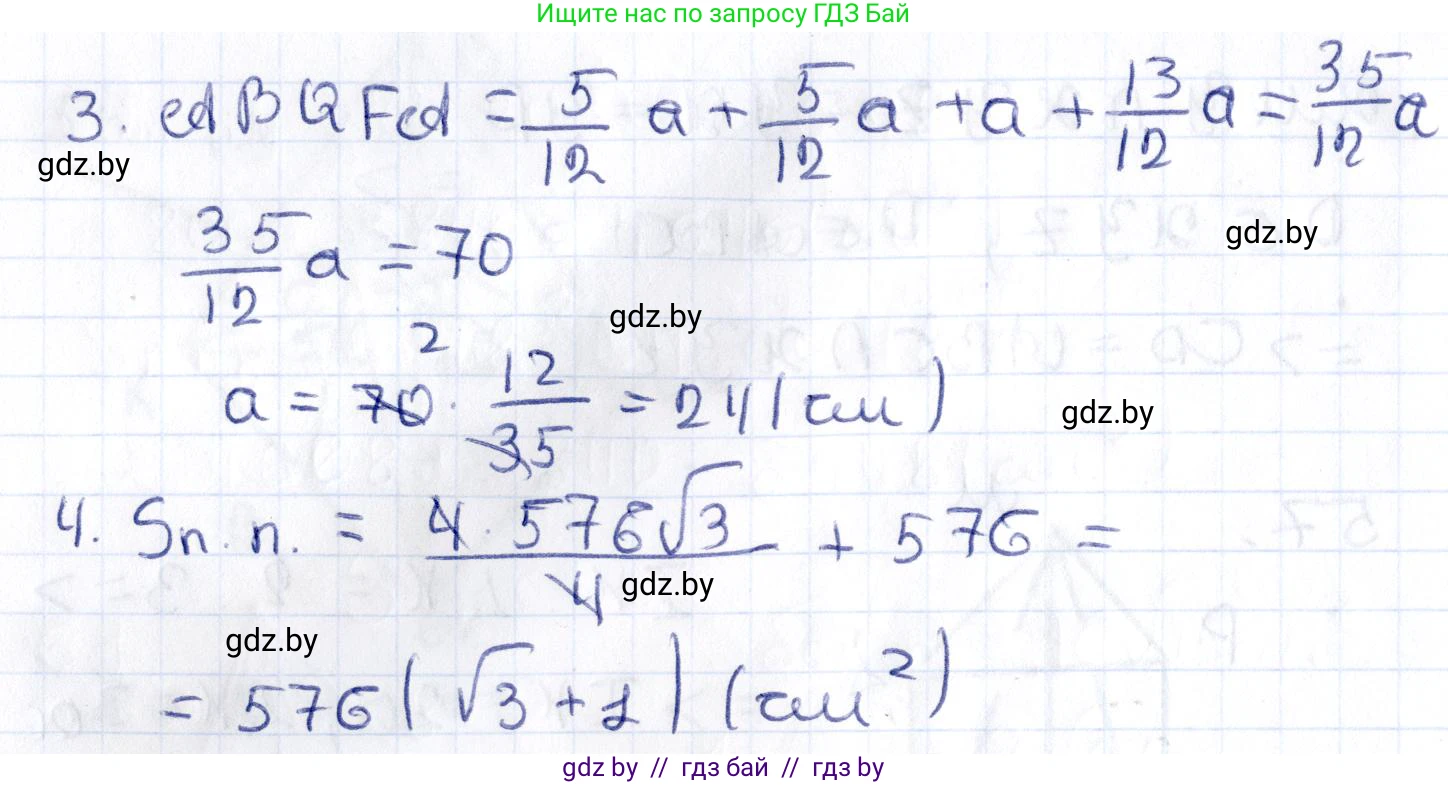 Ищите нас по запросу ГДЗ Бай
3. AB QFA = 5/12 a + 5/12 a + a + 13/12 a = 35/12 a
gdz.by
35/12 a = 70
gdz.by
gdz.by
a = 70 2 · 12/35 = 24 (см)
gdz.by
4. Sп.п. = 4·576√3/4 + 576 =
gdz.by
gdz.by
= 576(√3+1) (см²)
gdz by // гдз бай // гдз by